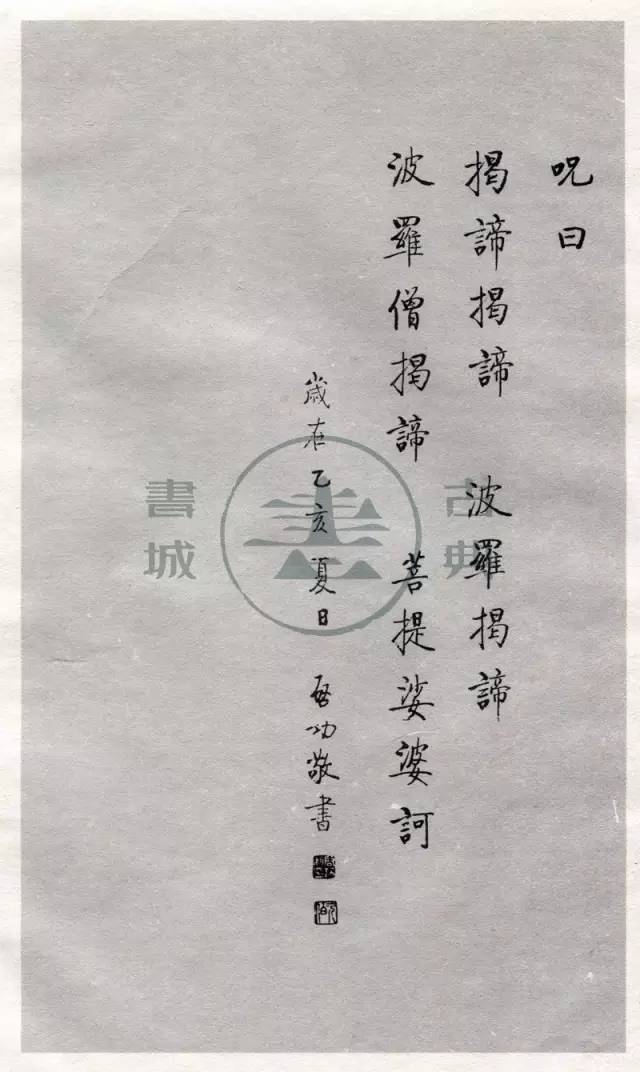 呪曰
揭諦揭諦 波羅揭諦
波羅僧揭諦 菩提娑婆訶
歲在乙亥夏日 启功敬書
古典
書城